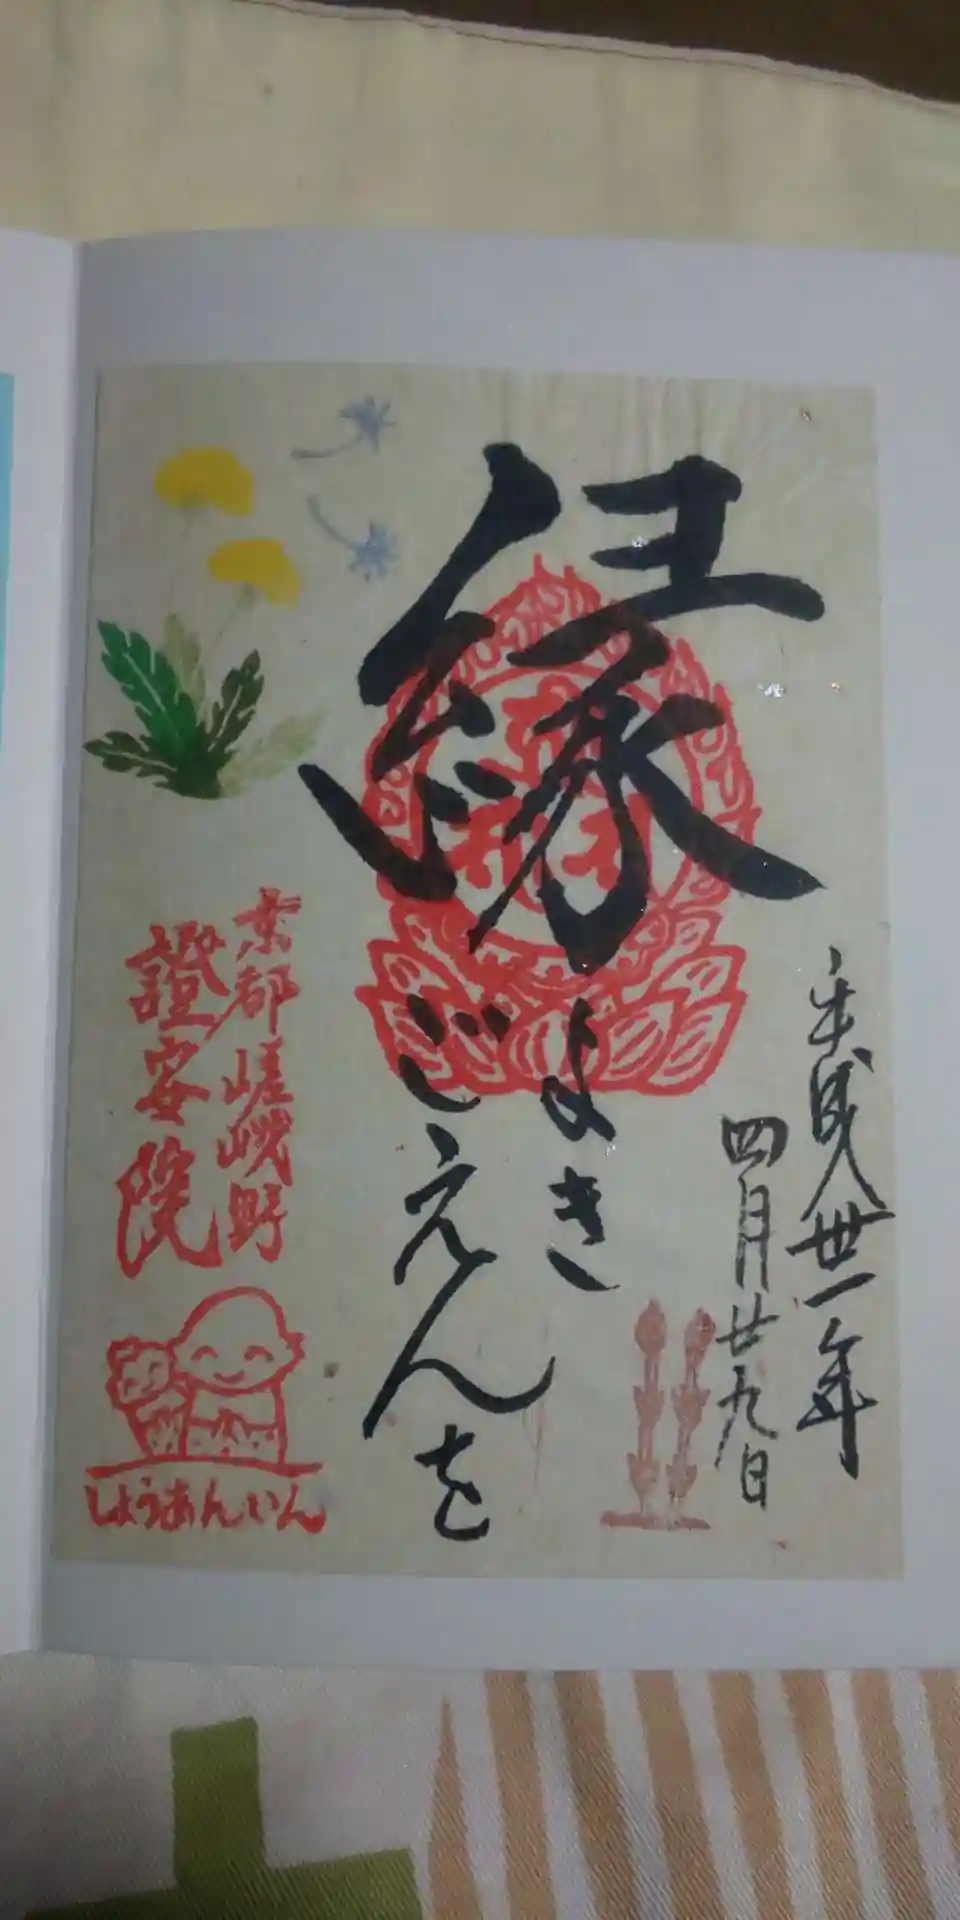 平成丗一年
四月廿九日
縁
よき
ごえんを
京都嵯峨野
證安院
しょうあんいん